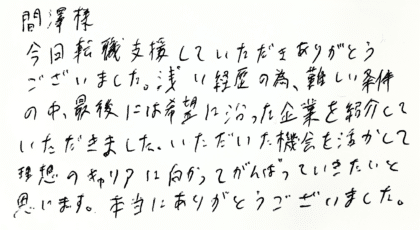 間澤様
今回転職支援していただきありがとう
ございました。浅い経歴の為、難しい条件
の中、最後には希望に沿った企業を紹介して
いただきました。いただいた機会を活かして
理想のキャリアに向かってがんばっていきたいと
思います。本当にありがとうございました。